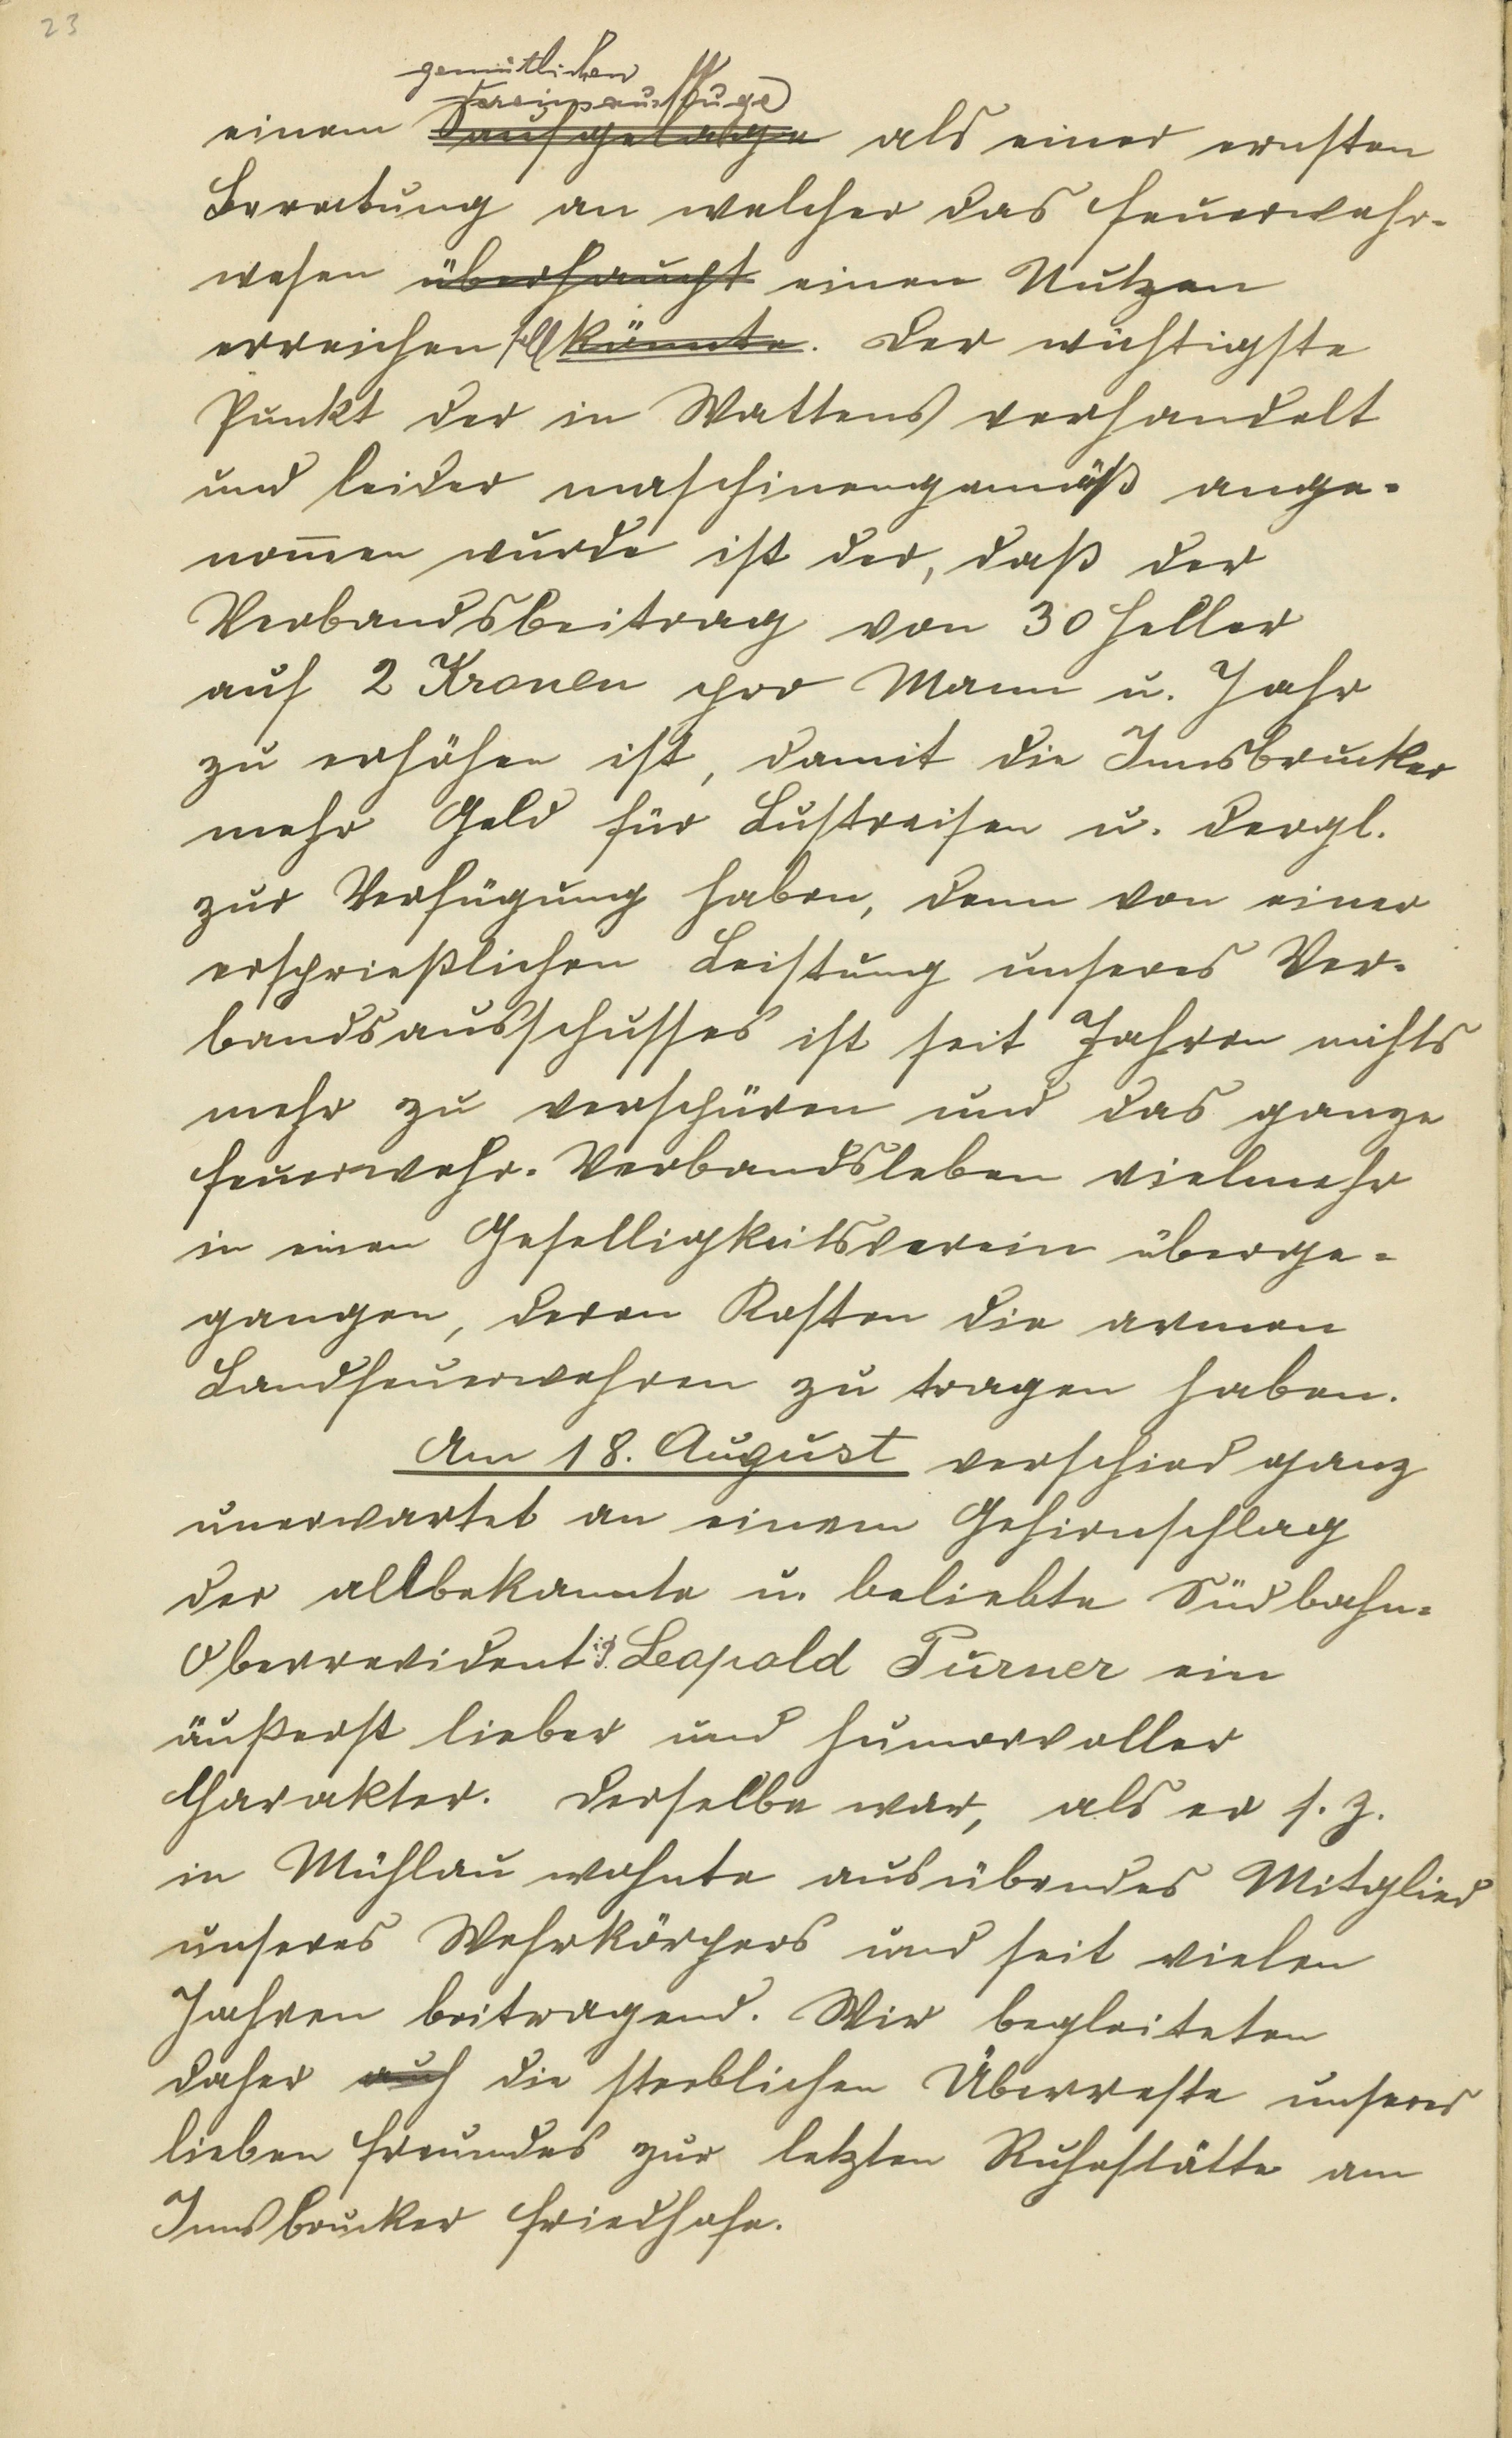 23
gemütlichen
Vereinsausfluge
einem Saufgelage als einer ernsten
Beratung an welcher das Feuerwehr-
wesen überhaupt einen Nutzen
erreichen soll könnte. Der wichtigste
Punkt der in Wattens verhandelt
und leider maschinengemäß ange-
nom̅en wurde ist der, daß der
Verbandsbeitrag von 30 Heller
auf 2 Kronen pro Mann u. Jahr
zu erhöhen ist, damit die Innsbrucker
mehr Geld für Lustreisen u. dergl.
zur Verfügung haben, denn von einer
ersprießlichen Leistung unseres Ver-
bandsausschusses ist seit Jahren nichts
mehr zu verspüren und das ganze
Feuerwehr-Verbandsleben vielmehr
in einen Geselligkeitsverein überge-
gangen, deren Kosten die armen
Landfeuerwehren zu tragen haben.
Am 18. August verschied ganz
unerwartet an einem Gehirnschlag
der allbekannte u. beliebte Südbahn-
Oberrevident i. P. Leopold Purner ein
äußerst lieber und humorvoller
Charakter. Derselbe war, als er s. Z.
in Mühlau wohnte ausübendes Mitglied
unseres Wehrkörpers und seit vielen
Jahren beitragend. Wir begleiteten
daher auch die sterblichen Überreste unseres
lieben Freundes zur letzten Ruhestätte am
Innsbrucker Friedhofe.